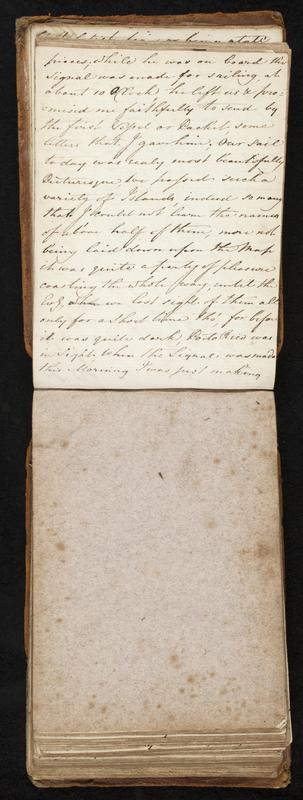 pieces, while he was on board the
signal was made for sailing, at
about 10 O'Clock he left us & pro-
=mised me faithfully to send by
the first Vessel or Packet some
letters that I gave him. Our sail
to day was realy most beautifully
Picturesque, we passed such a
variety of Islands, indeed so many
that I could not learn the names
of above half of them, more not
being laid down upon the Map
it was quite a party of pleasure
coasting the whole way, until the
Evg when we lost sight of them all
only for a short time tho' for before
it was quite dark, Porto Rico was
in Sight. When the Signal was made
this Morning I was just making